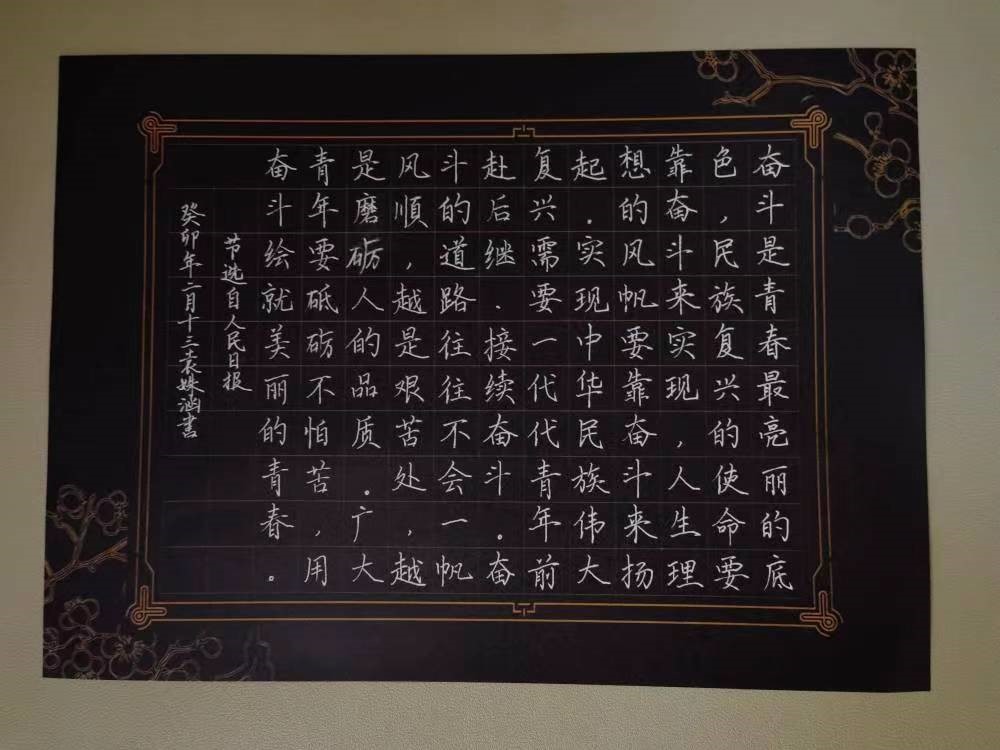 奋斗是青春最亮丽的底
色，民族复兴的使命要
靠奋斗来实现，人生理
想的风帆要靠奋斗来扬
起。实现中华民族伟大
复兴需要一代代青年前
赴后继、接续奋斗。奋
斗的道路往往不会一帆
风順，越是艰苦处，越
是磨砺人的品质。广大
青年要砥砺不怕苦，用
奋斗绘就美丽的青春。
节选自人民日报
癸卯年二月十三袁姝涵書